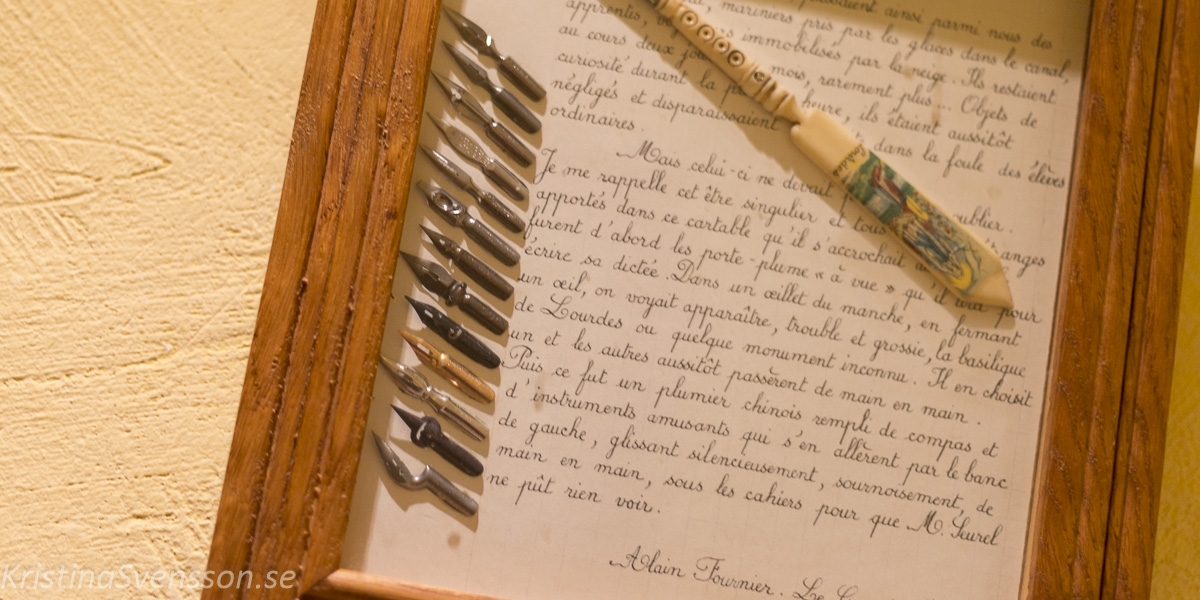 passaient ainsi parmi nous des
apprentis, mariniers pris par les glaces dans le canal,
au cours immobilisés par la neige. Ils restaient
curiosité deux jours mois, rarement plus... Objets de
négligés durant la heure, ils étaient aussitôt
et disparaissaient dans la foule des élèves
ordinaires.
Mais celui-ci ne devait oublier.
Je me rappelle cet être singulier et tous étranges
apportés dans ce cartable qu'il s'accrochait
furent d'abord les porte-plume « à vue » qu'il tira pour
écrire sa dictée. Dans un œillet du manche, en fermant
un œil, on voyait apparaître, trouble et grossie, la basilique
de Lourdes ou quelque monument inconnu. Il en choisit
un et les autres aussitôt passèrent de main en main.
Puis ce fut un plumier chinois rempli de compas et
d'instruments amusants qui s'en allèrent par le banc
de gauche, glissant silencieusement, sournoisement, de
main en main, sous les cahiers pour que M. Seurel
ne pût rien voir.
Alain Fournier. Le
Lourdes
KristinaSvensson.se